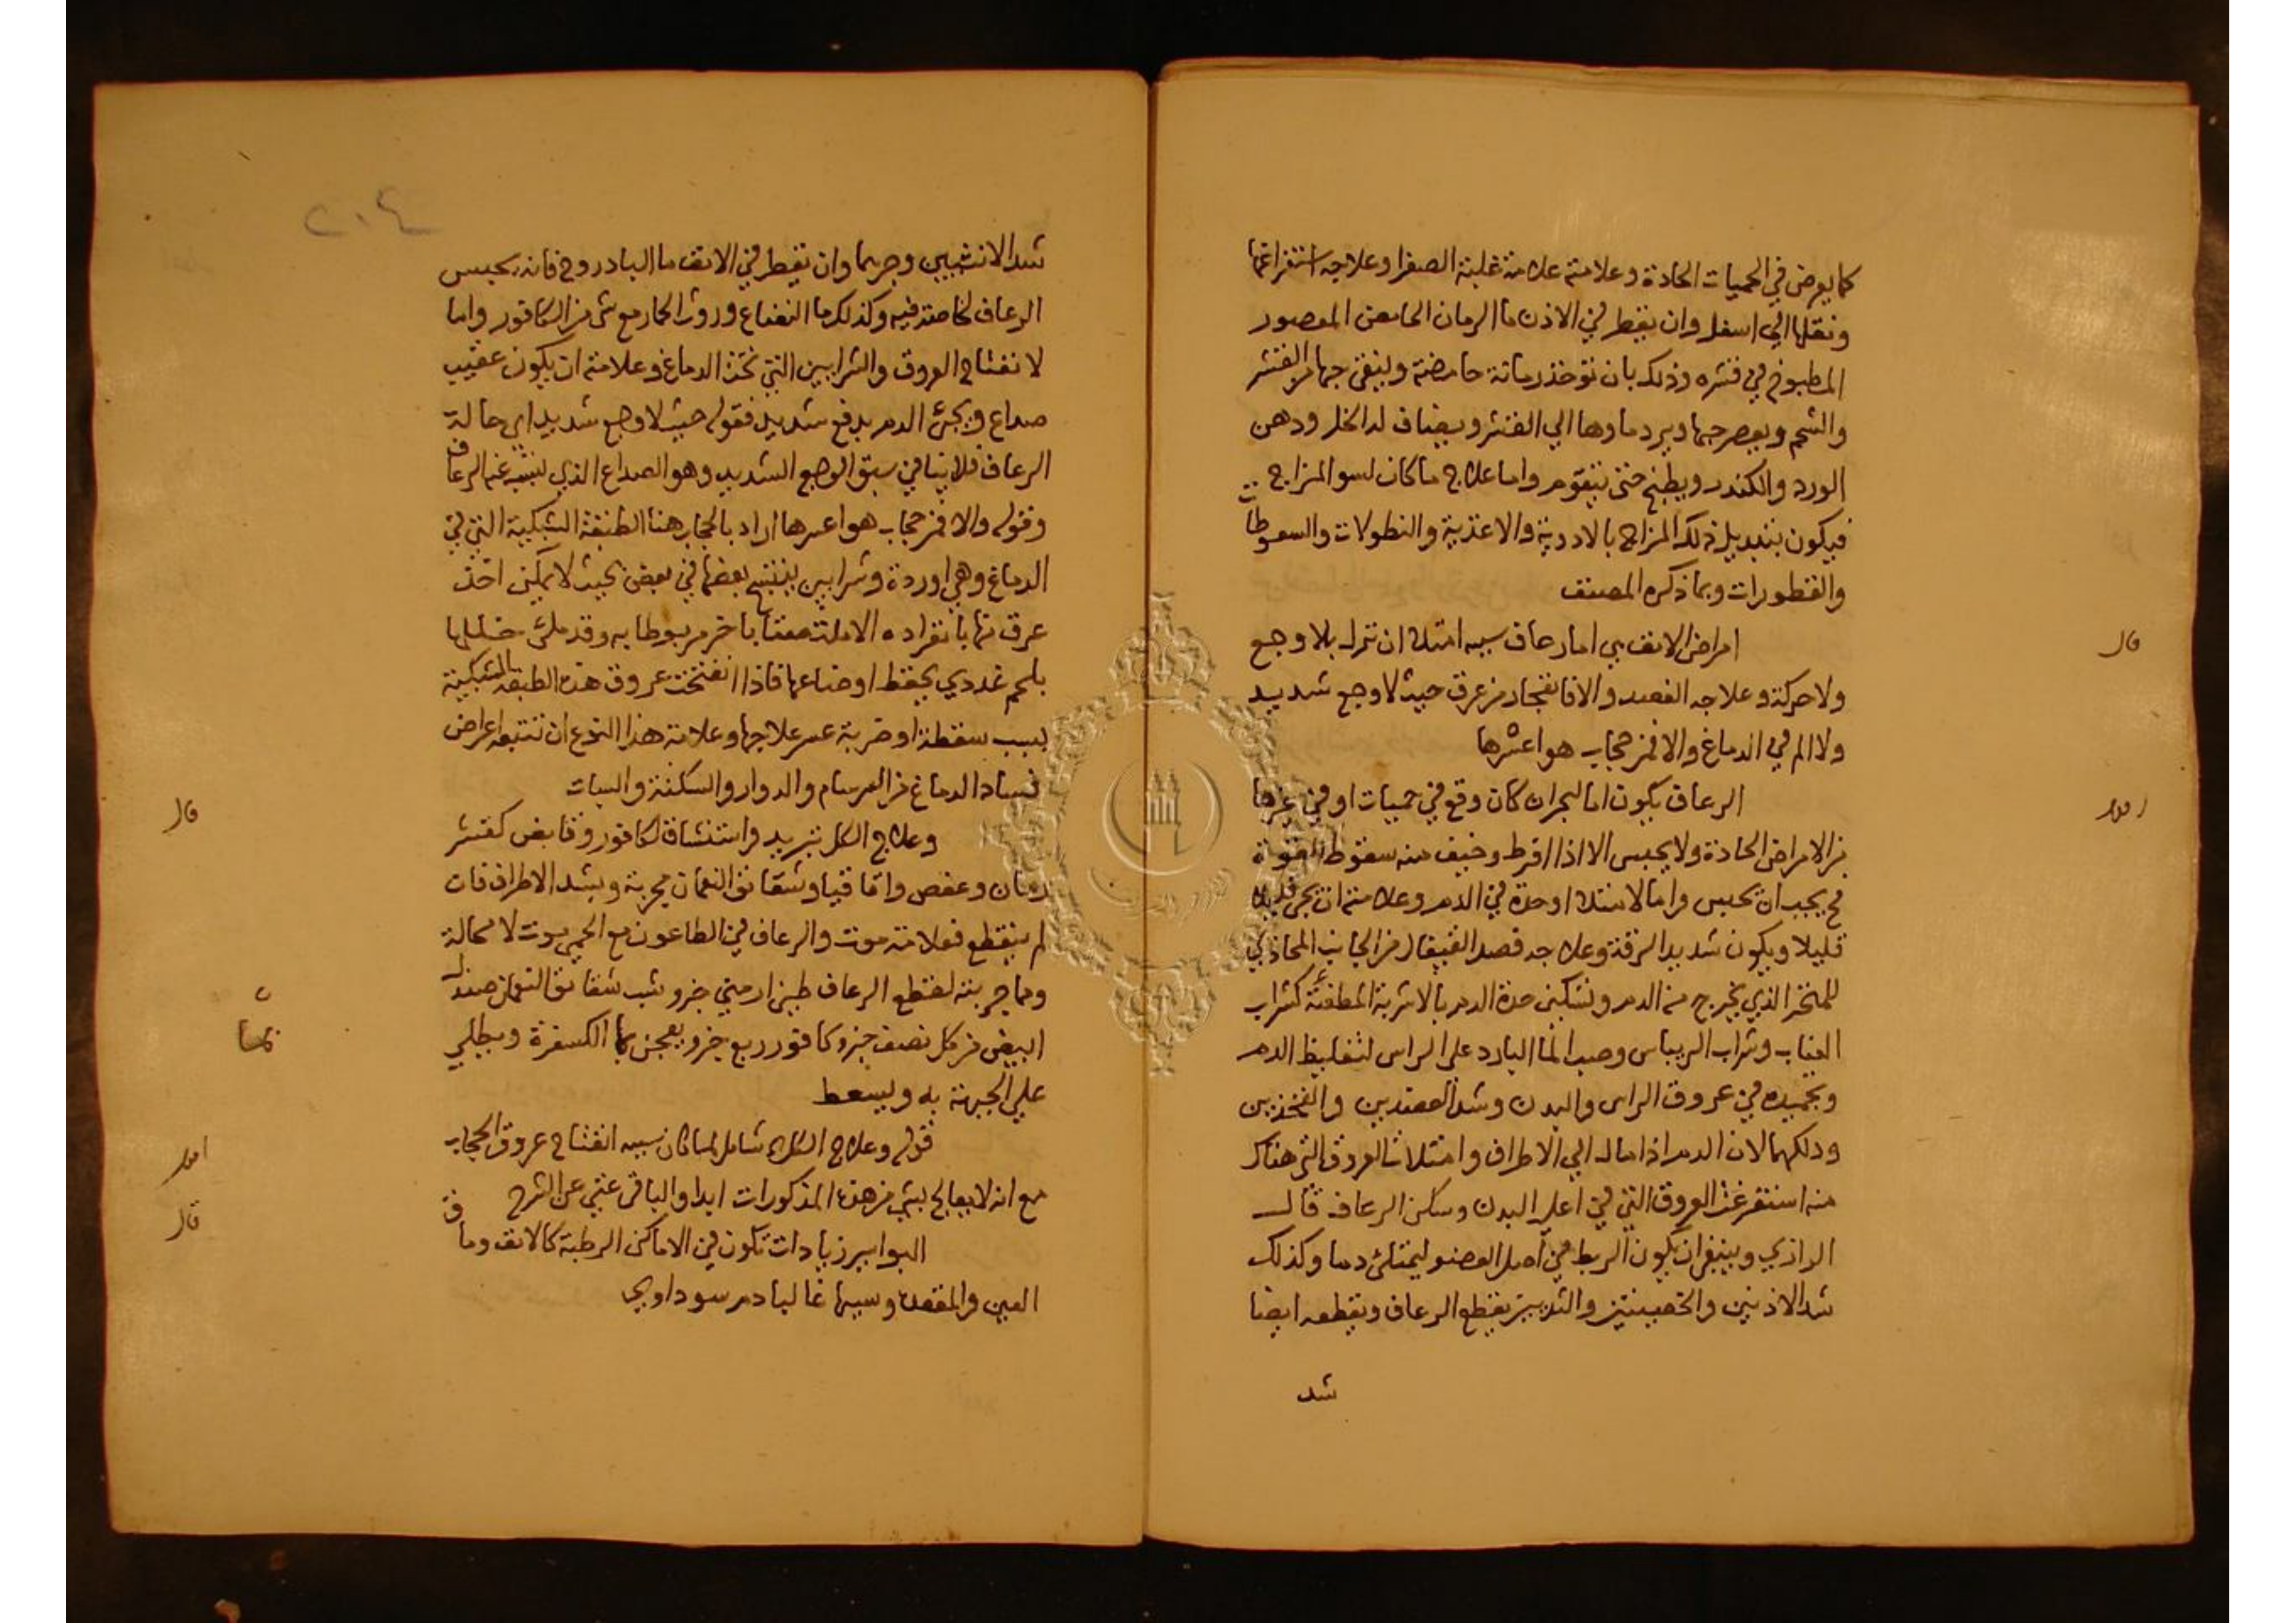 كما يعرض في الحميات الحادة وعلامته علامة غلبة الصفرا وعلاجه استفراغها
ونقلها الي اسفل وان يقطر في الاذن ما الرمان الحامض المعصور
المطبوخ في قشره وذلك بان توخذ رمانة حامضة وينقي حبها من القشر
والشحم ويعصر حبها ويرد ماوها الي القشر ويضاف له الخل ودهن
الورد والكندر ويطبخ حتى يتقوم واما علاج ما كان لسو المزاج
فيكون بتبديل ذلك المزاج بالادوية والاغذية والنطولات والسعوطات
والقطورات وبما ذكره المصنف
قال
امراض الانف هي اما رعاف سببه امتلا ان نزل بلا وجع
ولا حركة وعلاجه الفصد والا فانفجار من عرق حيث لا وجع شديد
ولا الم في الدماغ والا فمن حجاب هو اعسرها
اقول
الرعاف يكون اما لبحران كان وقع في حميات او في غيرها
من الامراض الحادة ولا يحبس الا اذا افرط وخيف منه سقوط القوة
فح يجب ان يحبس واما لامتلا او حدة في الدم وعلامته ان يجري قليلا
قليلا ويكون شديد الرقة وعلاجه فصد القيفال من الجانب المحاذي
للمنخر الذي يخرج منه الدم وتسكين حدة الدم بالاشربة المطفئة كشراب
العناب وشراب الريباس وصب الما البارد على الراس لتغليظ الدم
وتجميده في عروق الراس والبدن وشد العضدين والفخذين
ودلكهما لان الدم اذا مال الي الاطراف وامتلات العروق التي هناك
منه استفرغت العروق التي في اعلي البدن وسكن الرعاف قال
الرازي وينبغي ان يكون الربط في اصل العضو ليمتلئ دما وكذلك
شد الاذنين والخصيتين والثديين يقطع الرعاف ويقطعه ايضا
شد
٢١٤
شد الانثيين وجرهما وان يقطر في الانف ما الباذروج فانه يحبس
الرعاف لخاصة فيه وكذلك ما النعناع وروث الحمار مع شي من الكافور واما
لانفتاح العروق والشرايين التي تحت الدماغ وعلامته ان يكون عقيب
صداع ويجئ الدم بدفع شديد فقوله حيث لا وجع شديد اي حالة
الرعاف فلا ينافي سبق الوجع الشديد وهو الصداع الذي ينبثق عنه الرعاف
وقوله والا فمن حجاب هو اعسرها اراد بالحجاب هنا الطبقة الشبكية التي في
الدماغ وهي اوردة وشرايين ينتسج بعضها في بعض بحيث لا يمكن اخذ
عرق منها بانفراده الا ملتصقا باخر مربوطا به وقد ملئ خللها
بلحم غددي يحفظ اوضاعها فاذا انفتحت عروق هذه الطبقة الشبكية
بسبب سقطة او ضربة عسر علاجها وعلامة هذا النوع ان تتبعه اعراض
فساد الدماغ من السرسام والدوار والسكتة والسبات
قال
وعلاج الكل تبريد واستنشاق الكافور وقابض كقشر
رمان وعفص واقاقيا وشقائق النعمان مجربة ويشد الاطراف فان
لم ينقطع فعلامة موت والرعاف في الطاعون مع الحمي موت لا محالة
ومما جربته لقطع الرعاف طين ارمني جزو شب شقائق النعمان صندل
ابيض من كل نصف جزو كافور ربع جزو يعجن بما الكسفرة ويطلي
علي الجبهة به ويسعط
اقول
قوله وعلاج الكل شامل لما كان سببه انفتاح عروق الحجاب
مع انه لا يعالج بشي من هذه المذكورات ابدا والباقي غني عن الشرح
قال
البواسير زيادات تكون في الاماكن الرطبة كالانف وما
العين والمقعدة وسببها غالبا دم سوداوي